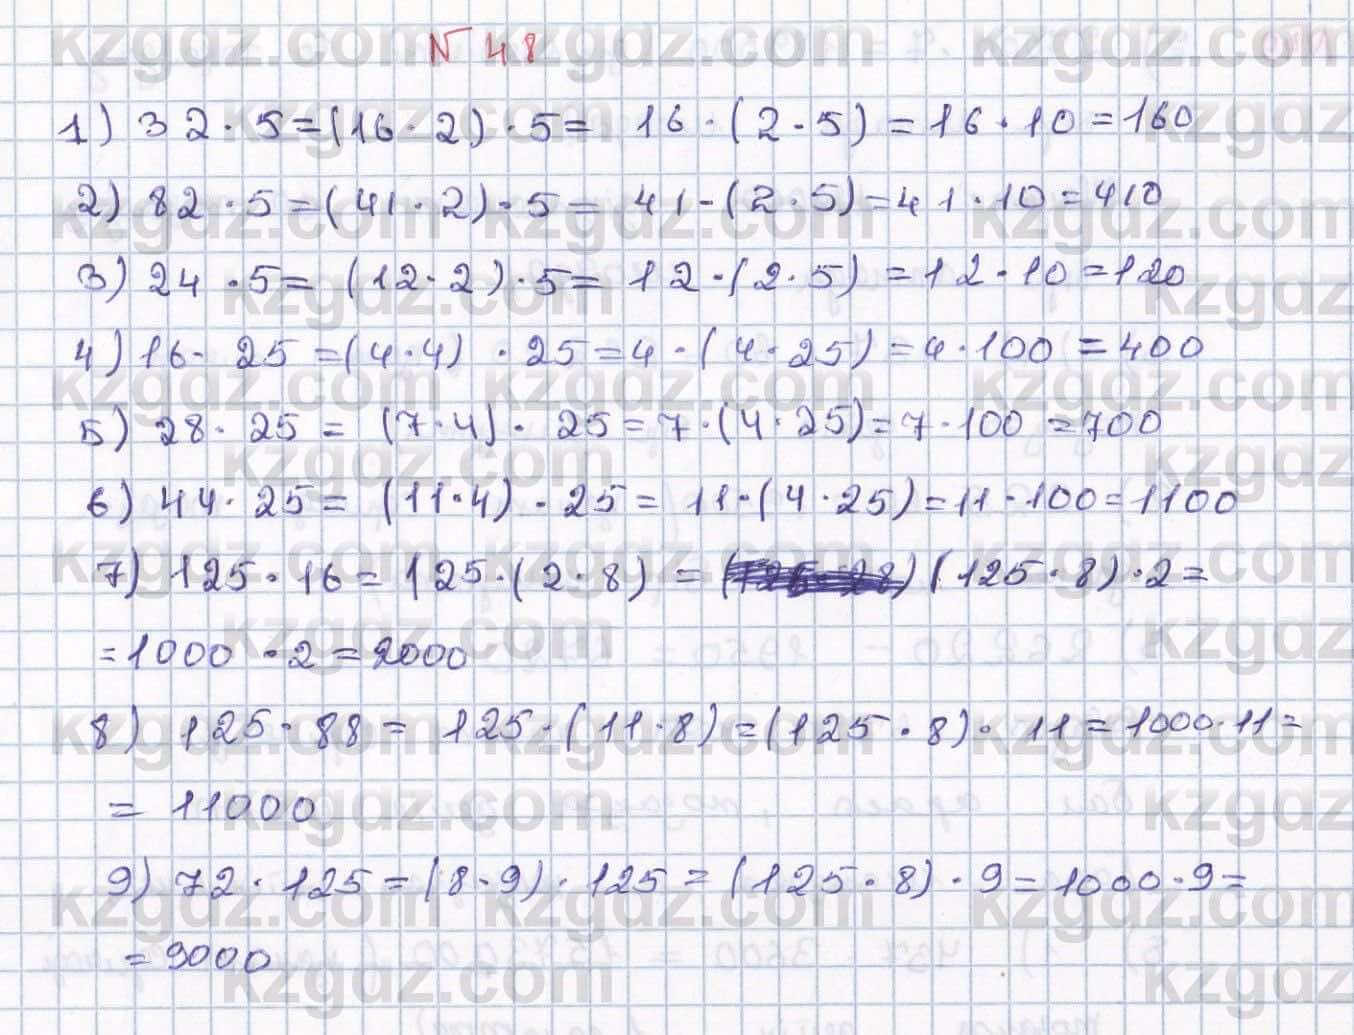 № 48
1) 32 · 5 = (16 · 2) · 5 = 16 · (2 · 5) = 16 · 10 = 160
2) 82 · 5 = (41 · 2) · 5 = 41 · (2 · 5) = 41 · 10 = 410
3) 24 · 5 = (12 · 2) · 5 = 12 · (2 · 5) = 12 · 10 = 120
4) 16 · 25 = (4 · 4) · 25 = 4 · (4 · 25) = 4 · 100 = 400
5) 28 · 25 = (7 · 4) · 25 = 7 · (4 · 25) = 7 · 100 = 700
6) 44 · 25 = (11 · 4) · 25 = 11 · (4 · 25) = 11 · 100 = 1100
7) 125 · 16 = 125 · (2 · 8) = (125 · 8) · 2 =
= 1000 · 2 = 2000
8) 125 · 88 = 125 · (11 · 8) = (125 · 8) · 11 = 1000 · 11 =
= 11000
9) 72 · 125 = (8 · 9) · 125 = (125 · 8) · 9 = 1000 · 9 =
= 9000
kzgdz.com